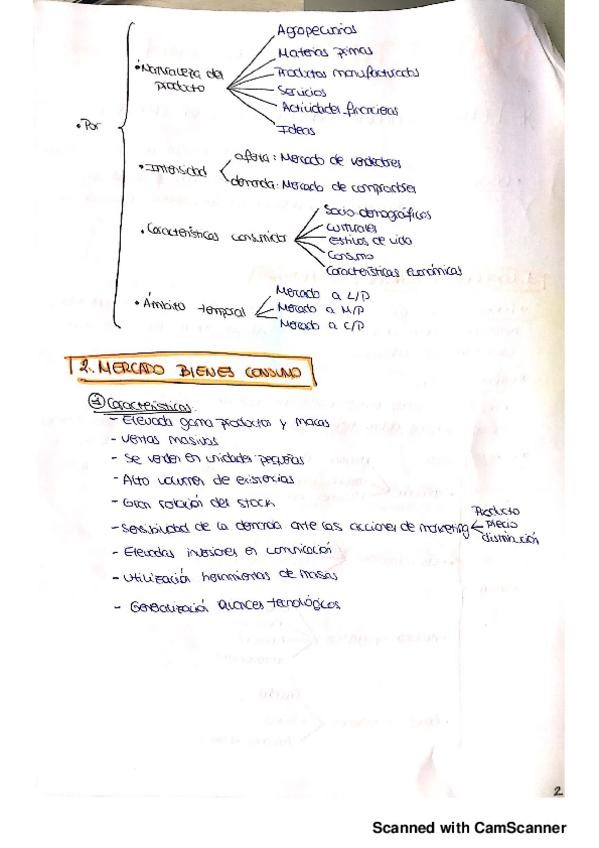 • Por
• Naturaleza del producto
Agropecuarios
Materias primas
Productos manufacturados
Servicios
Actividades financieras
Ideas
• Intensidad
oferta: Mercado de vendedores
demanda: Mercado de comprador
• Características consumidor
Socio-demográficos
Culturales
estilos de vida
Consumo
Características económicas
• Ámbito temporal
Mercado a L/P
Mercado a M/P
Mercado a C/P
2. MERCADO BIENES CONSUMO
① Características.
- Elevada gama productos y marcas
- Ventas masivas
- Se venden en unidades pequeñas
- Alto volumen de existencias
- Gran rotación del stock
- Sensibilidad de la demanda ante las acciones de marketing
Producto
precio
distribución
- Elevadas inversiones en comunicación
- Utilización herramientas de masas
- Generalización avances tecnológicos
2
Scanned with CamScanner